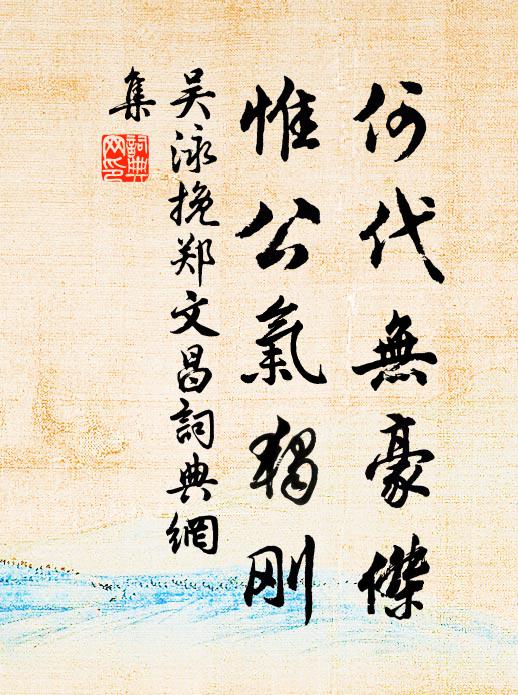 何代無豪傑
惟公氣獨刚
吴泳挽郑文昌詞典網
集
詞典
网印